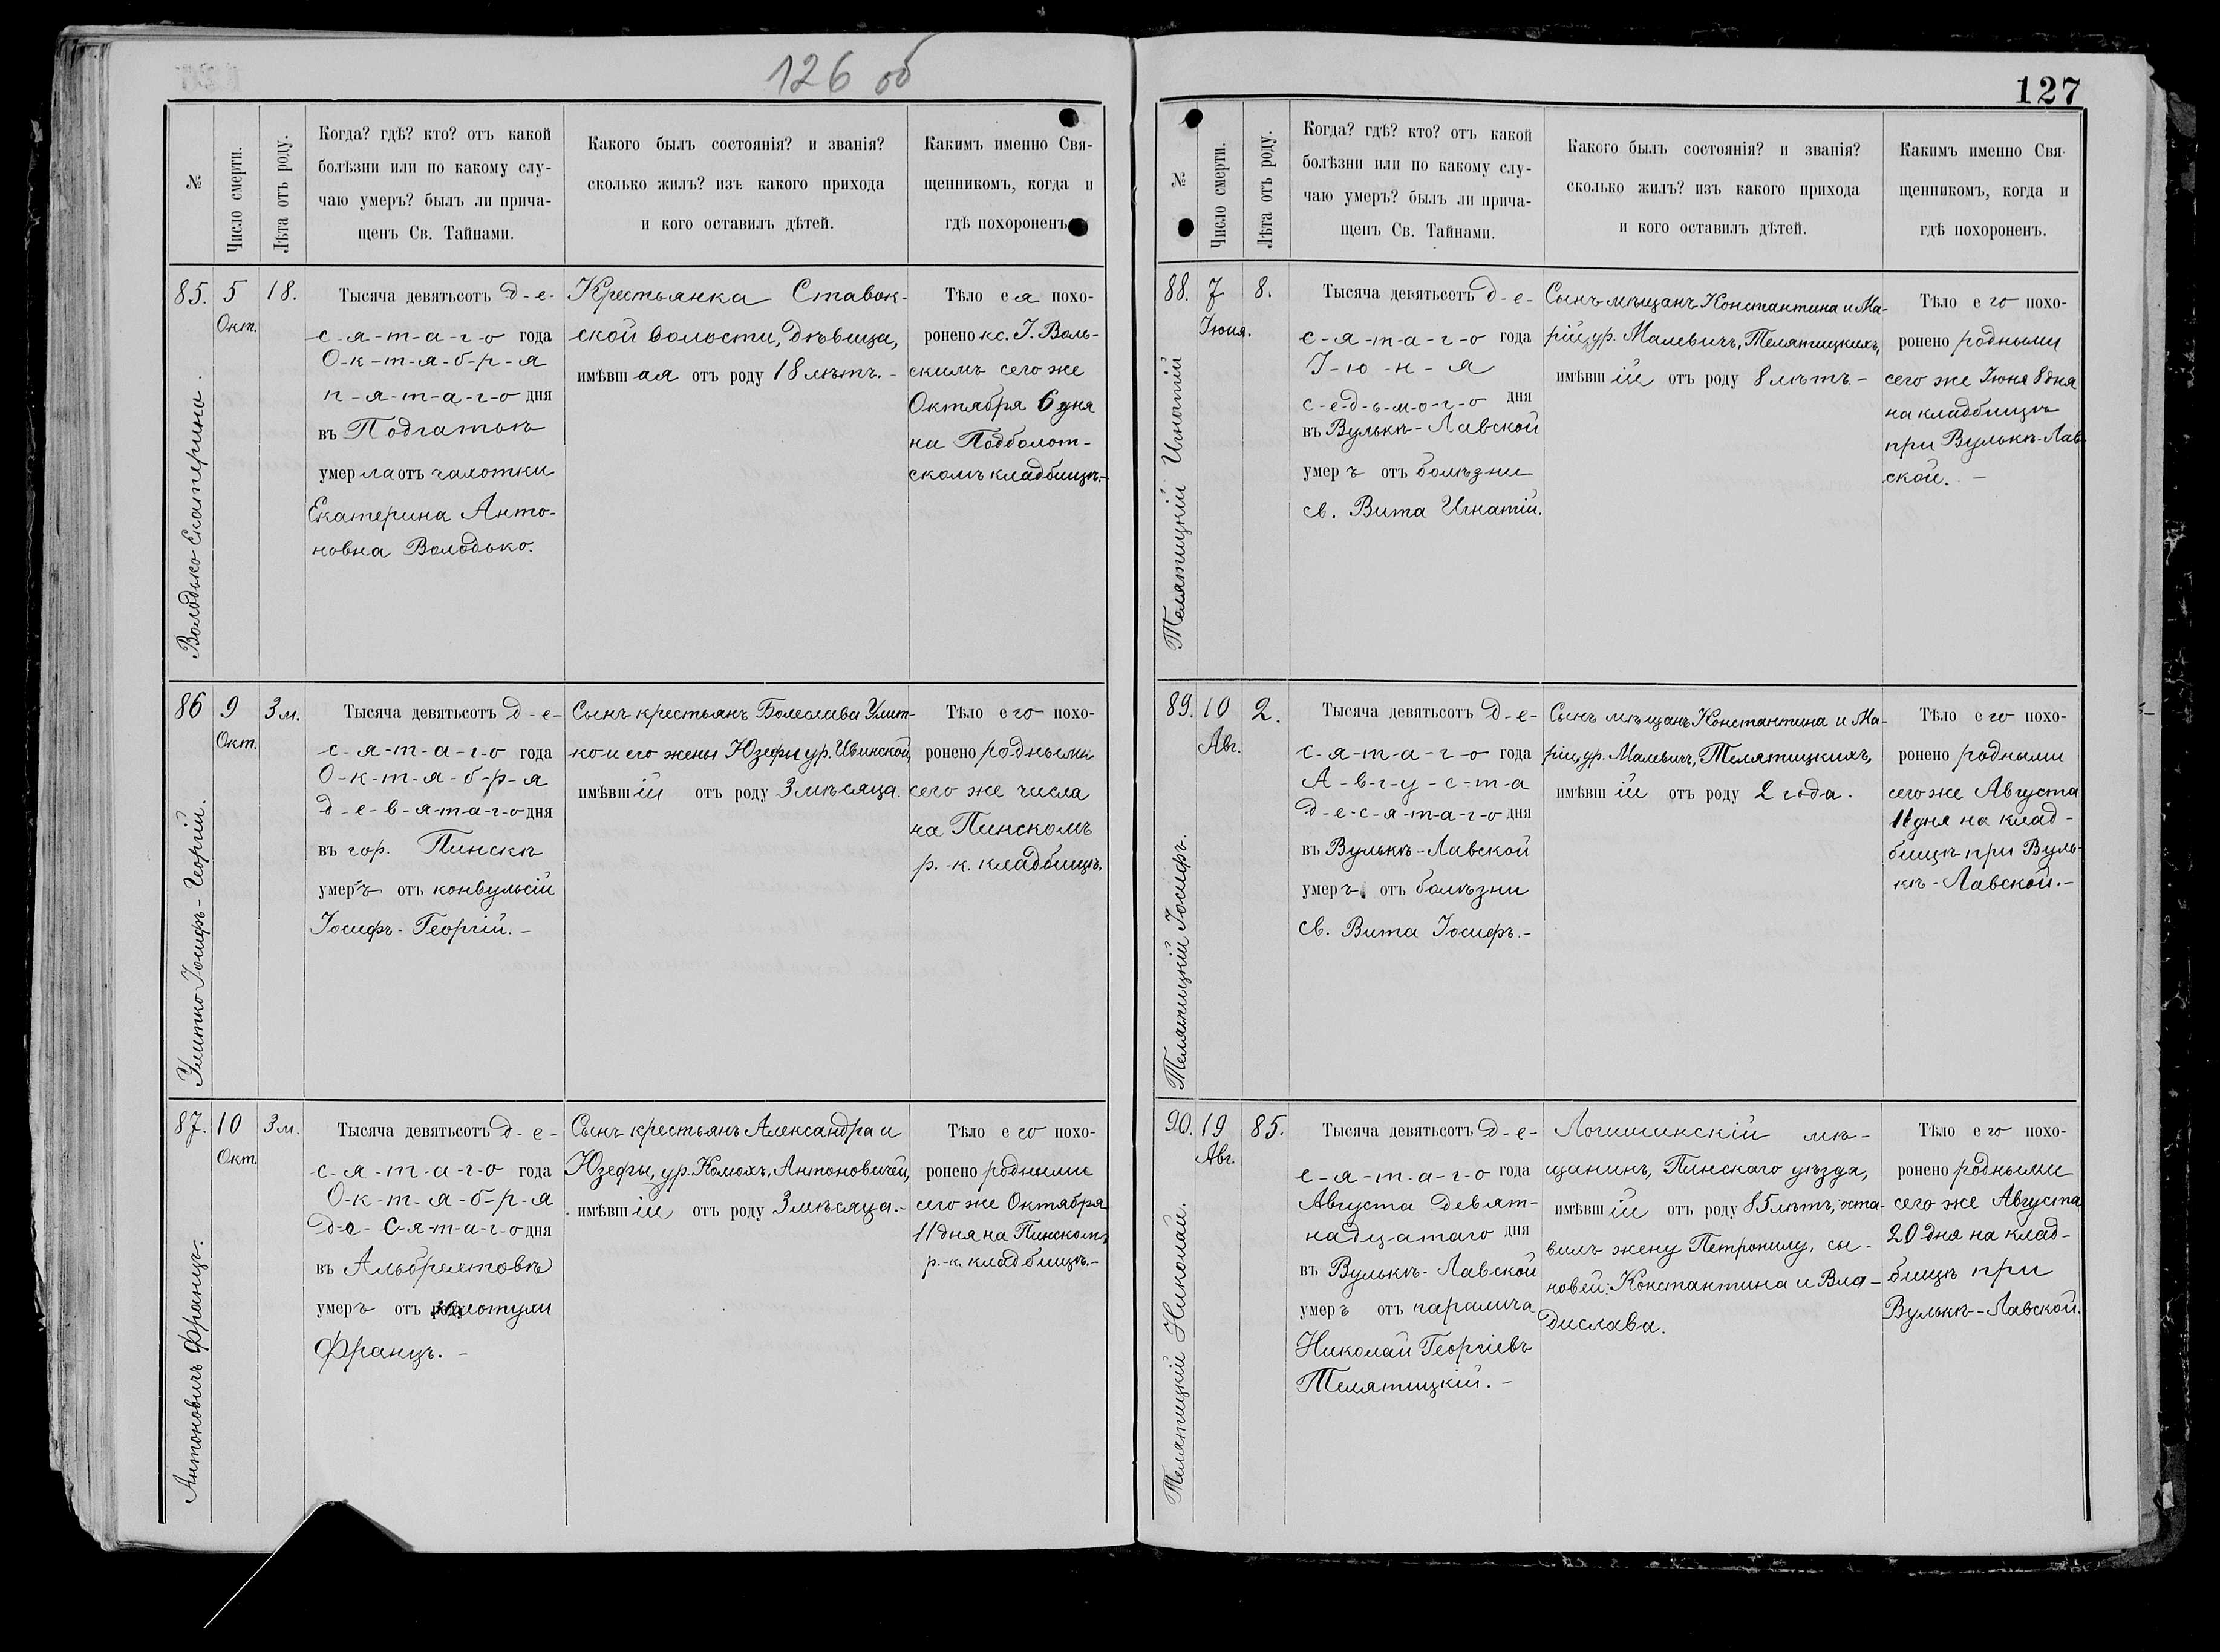 126 об
№
Число смерти.
Лѣта отъ роду.
Когда? гдѣ? кто? отъ какой
болѣзни или по какому слу-
чаю умеръ? былъ ли прича-
щенъ Св. Тайнами.
Какого былъ состоянія? и званія?
сколько жилъ? изъ какого прихода
и кого оставилъ дѣтей.
Какимъ именно Свя-
щенникомъ, когда и
гдѣ похороненъ
85.
Володько Екатерина.
5
Окт.
18.
Тысяча девятьсотъ д-е-
с-я-т-а-г-о года
О-к-т-я-б-р-я
п-я-т-а-г-о дня
въ Подгатьѣ
умерла отъ чахотки
Екатерина Анто-
новна Володько.
Крестьянка Ставок-
ской волости, дѣвица,
имѣвшая отъ роду 18 лѣтъ. -
Тѣло ея похо-
ронено кс. І. Воль-
скимъ сего же
Октября 6 дня
на Подболот-
скомъ кладбищѣ.-
86
Улитко Іосифъ-Георгій.
9
Окт.
3 м.
Тысяча девятьсотъ д-е-
с-я-т-а-г-о года
О-к-т-я-б-р-я
д-е-в-я-т-а-г-о дня
въ гор. Пинскѣ
умеръ отъ конвульсій
Іосифъ-Георгій. -
Сынъ крестьянъ Болеслава Улит-
ко и его жены Юзефы ур. Ивинской,
имѣвшій отъ роду 3 мѣсяца.
Тѣло его похо-
ронено родными
сего же числа
на Пинскомъ
р.-к. кладбищѣ.
87.
Антоновичъ Францъ.
10
Окт.
3 м.
Тысяча девятьсотъ д-е-
с-я-т-а-г-о года
О-к-т-я-б-р-я
д-е-с-я-т-а-г-о дня
въ Альбрехтовѣ
умеръ отъ
Францъ. -
Сынъ крестьянъ Александра и
Юзефы, ур. Колюхъ, Антоновичей,
имѣвшій отъ роду 3 мѣсяца.-
Тѣло его похо-
ронено родными
сего же Октября
11 дня на Пинскомъ
р.-к. кладбищѣ.-
127
№
Число смерти.
Лѣта отъ роду.
Когда? гдѣ? кто? отъ какой
болѣзни или по какому слу-
чаю умеръ? былъ ли прича-
щенъ Св. Тайнами.
Какого былъ состоянія? и званія?
сколько жилъ? изъ какого прихода
и кого оставилъ дѣтей.
Какимъ именно Свя-
щенникомъ, когда и
гдѣ похороненъ.
88.
Телятицкій Игнатій
7
Іюня.
8.
Тысяча девятьсотъ д-е-
с-я-т-а-г-о года
І-ю-н-я
с-е-д-ь-м-о-г-о дня
въ Вулькѣ-Лавской
умеръ отъ болѣзни
св. Вита Игнатій.
Сынъ мѣщанъ Константина и Ма-
ріи, ур. Малевичъ, Телятицкихъ,
имѣвшій отъ роду 8 лѣтъ. -
Тѣло его похо-
ронено родными
сего же Іюня 8 дня
на кладбищѣ
при Вулькѣ-Лав-
ской. -
89.
Телятицкій Іосифъ.
10
Авг.
2.
Тысяча девятьсотъ д-е-
с-я-т-а-г-о года
А-в-г-у-с-т-а
д-е-с-я-т-а-г-о дня
въ Вулькѣ-Лавской
умеръ отъ болѣзни
св. Вита Іосифъ.-
Сынъ мѣщанъ Константина и Ма-
ріи, ур. Малевичъ, Телятицкихъ,
имѣвшій отъ роду 2 года.
Тѣло его похо-
ронено родными
сего же Августа
11 дня на клад-
бищѣ при Вуль-
кѣ-Лавской.-
90.
Телятицкій Николай.
19
Авг.
85.
Тысяча девятьсотъ д-е-
с-я-т-а-г-о года
Августа девят-
надцатаго дня
въ Вулькѣ-Лавской
умеръ отъ паралича
Николай Георгіевъ
Телятицкій. -
Логишинскій мѣ-
щанинъ, Пинскаго уѣзда,
имѣвшій отъ роду 85 лѣтъ, оста-
вилъ жену Петронилу, сы-
новей: Константина и Вла-
дислава.
Тѣло его похо-
ронено родными
сего же Августа
20 дня на клад-
бищѣ при
Вулькѣ-Лавской.